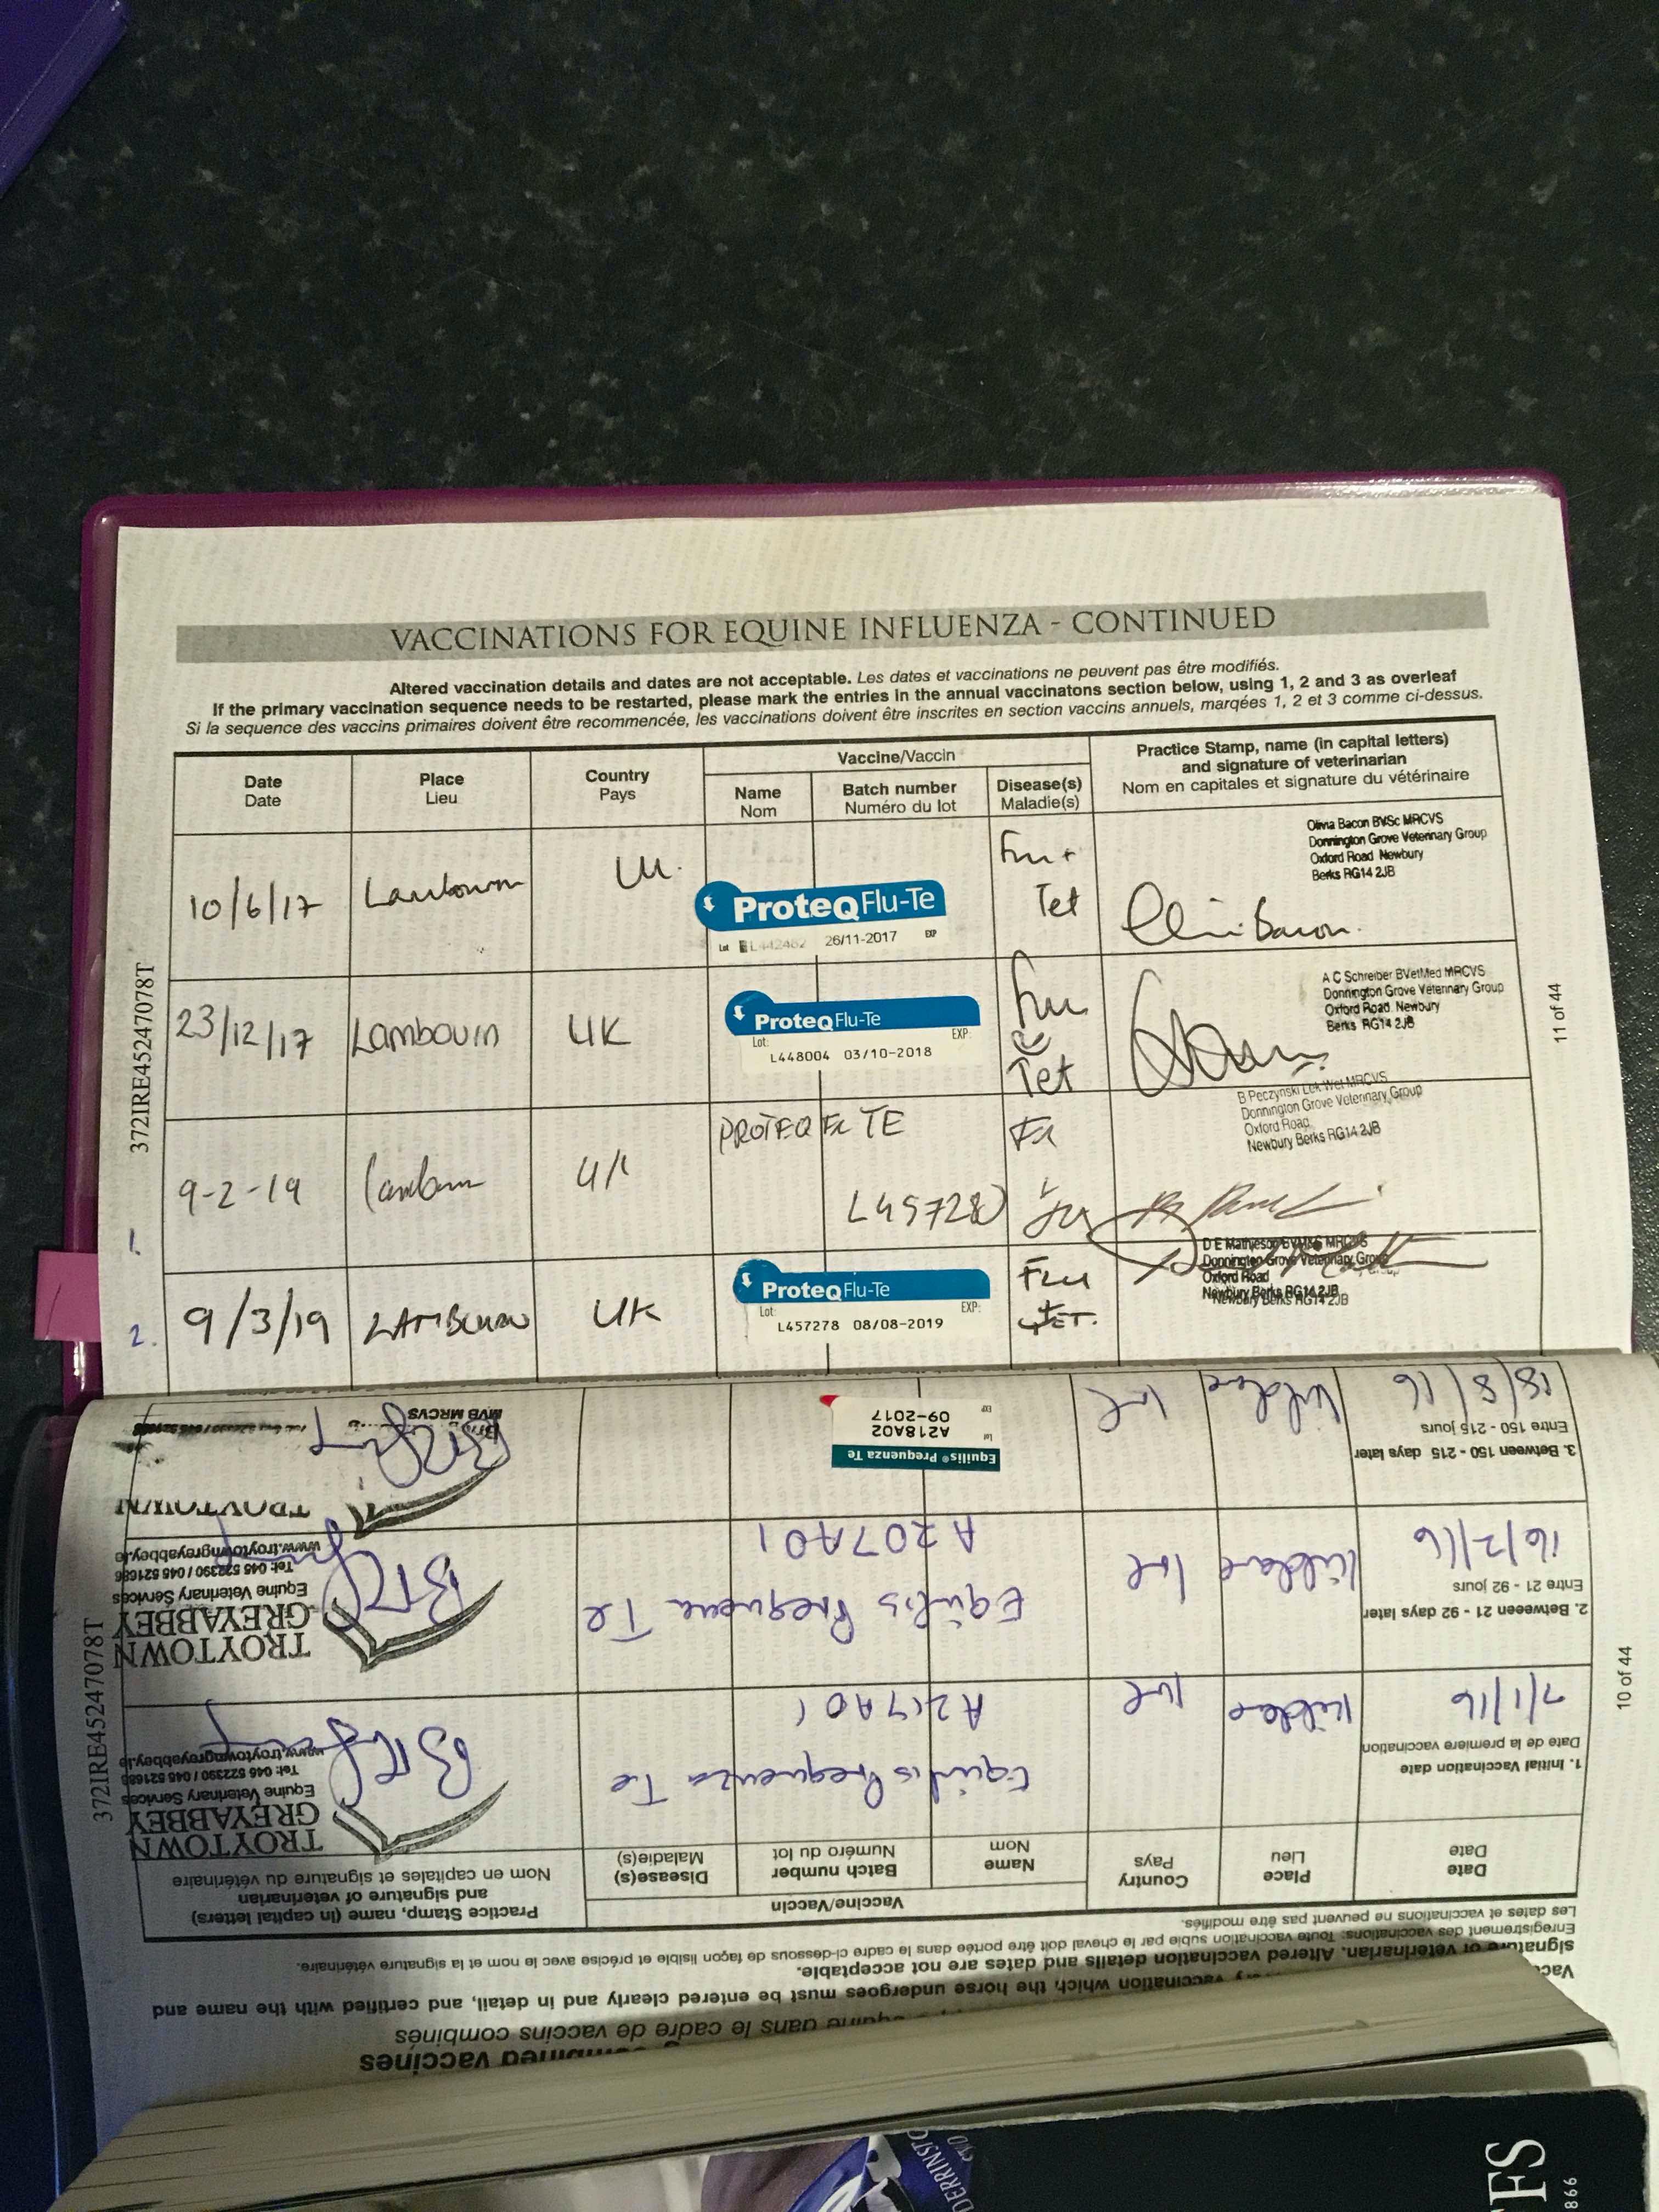 VACCINATIONS FOR EQUINE INFLUENZA - CONTINUED
Altered vaccination details and dates are not acceptable. Les dates et vaccinations ne peuvent pas être modifiés.
If the primary vaccination sequence needs to be restarted, please mark the entries in the annual vaccinatons section below, using 1, 2 and 3 as overleaf
Si la sequence des vaccins primaires doivent être recommencée, les vaccinations doivent être inscrites en section vaccins annuels, marqées 1, 2 et 3 comme ci-dessus.
Date
Date
Place
Lieu
Country
Pays
Vaccine/Vaccin
Name
Nom
Batch number
Numéro du lot
Disease(s)
Maladie(s)
Practice Stamp, name (in capital letters)
and signature of veterinarian
Nom en capitales et signature du vétérinaire
10/6/17
Lambourn
UK
ProteqFlu-Te
Lot L442462 26/11-2017 EXP
Flu +
Tet
Olivia Bacon BVSc MRCVS
Donnington Grove Veterinary Group
Oxford Road Newbury
Berks RG14 2JB
23/12/17
Lambourn
UK
ProteqFlu-Te
Lot: EXP:
L448004 03/10-2018
Flu
&
Tet
A C Schreiber BVetMed MRCVS
Donnington Grove Veterinary Group
Oxford Road, Newbury
Berks RG14 2JB
1.
9-2-19
Lambourn
UK
PROTEQ Flu TE
L457280
Flu
B Peczynski Lek Wet MRCVS
Donnington Grove Veterinary Group
Oxford Road
Newbury Berks RG14 2JB
2.
9/3/19
LAMBOURN
UK
ProteqFlu-Te
Lot: EXP:
L457278 08/08-2019
Flu
+ TET.
D E Mathieson BVM&S MRCVS
Donnington Grove Veterinary Group
Oxford Road
Newbury Berks RG14 2JB
Newbury Berks RG14 2JB
372IRE45247078T
11 of 44
combined vaccines
équine dans le cadre de vaccins combinés
vaccination which the horse undergoes must be entered clearly and in detail, and certified with the name and
signature of veterinarian. Altered vaccination details and dates are not acceptable.
Enregistrement des vaccinations: Toute vaccination subie par le cheval doit être portée dans le cadre ci-dessous de façon lisible et précise avec le nom et la signature vétérinaire.
Les dates et vaccinations ne peuvent pas être modifiés.
Date
Date
Place
Lieu
Country
Pays
Vaccine/Vaccin
Name
Nom
Batch number
Numéro du lot
Disease(s)
Maladie(s)
Practice Stamp, name (in capital letters)
and signature of veterinarian
Nom en capitales et signature du vétérinaire
1. Initial Vaccination date
Date de la premiere vaccination
7/1/16
Kildare
Ire
Equilis Prequenza Te
A217A01
TROYTOWN
GREYABBEY
Equine Veterinary Services
Tel: 045 522390 / 045 521686
www.troytowngreyabbey.ie
2. Betweeen 21 - 92 days later
Entre 21 - 92 jours
16/2/16
Kildare
Ire
Equilis Prequenza Te
A207A01
TROYTOWN
GREYABBEY
Equine Veterinary Services
Tel: 045 522390 / 045 521686
www.troytowngreyabbey.ie
3. Between 150 - 215 days later
Entre 150 - 215 jours
18/8/16
Kildare
Ire
Equilis® Prequenza Te
Lot A218A02
EXP 09-2017
TROYTOWN
MVB MRCVS
372IRE45247078T
10 of 44